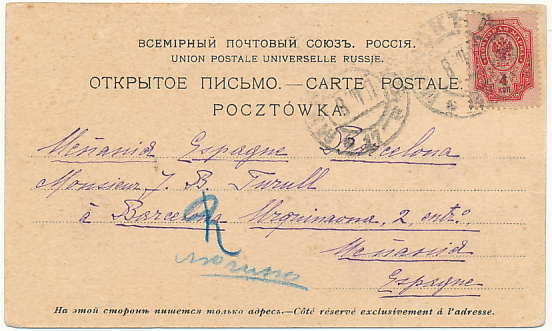 ВСЕМІРНЫЙ ПОЧТОВЫЙ СОЮЗЪ. РОССІЯ.
UNION POSTALE UNIVERSELLE RUSSIE.
ОТКРЫТОЕ ПИСЬМО.—CARTE POSTALE.
POCZTÓWKA
4
КОП
Испанія Espagne Barcelona
Monsieur J. B. Turull
à Barcelona Urquinaona, 2, entlo
Испанія
Espagne
На этой сторонѣ пишется только адресъ.—Côté réservé exclusivement á l'adresse.